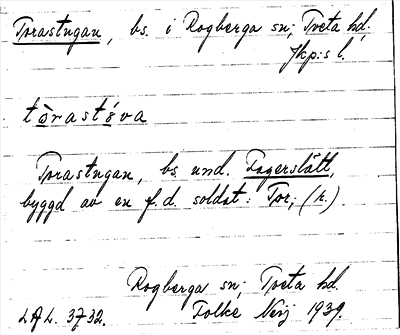 Torastugan, bs. i Rogberga sn; Tveta hd,
Jkp:s l.
tòrastúva
Torastugan, bs und. Fagerslätt,
byggd av en f.d. soldat: Tor; (r.).
Rogberga sn; Tveta hd.
LAL. 3732. Folke Nerj 1939.